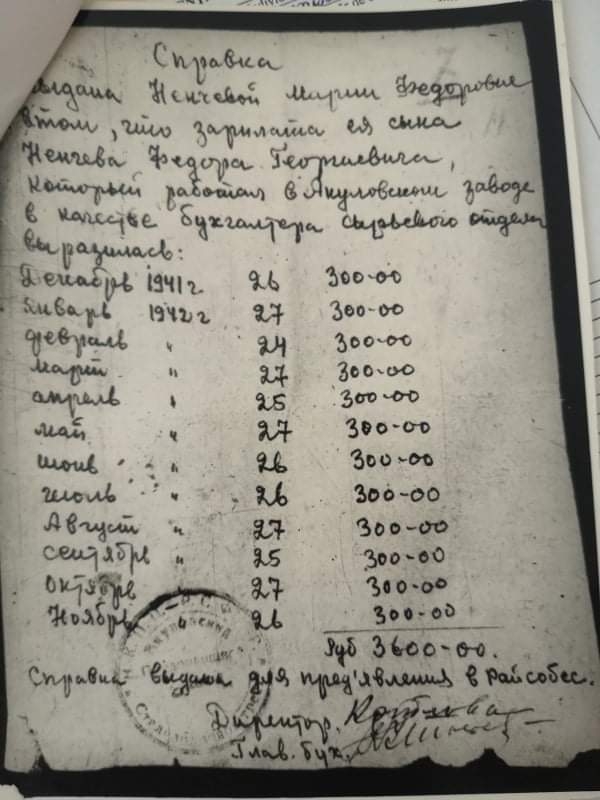 Справка
выдана Ненчевой Марии Федоровне
в том, что зарплата ея сына
Ненчева Федора Георгиевича,
который работал в Якуловском заводе
в качестве бухгалтера сырьевого отдела
выразилась:
Декабрь 1941 г. 26 300-00
Январь 1942 г 27 300-00
февраль " 24 300-00
март " 27 300-00
апрель " 25 300-00
май " 27 300-00
июнь " 26 300-00
июль " 26 300-00
Август " 27 300-00
сентябрь " 25 300-00
октябрь " 27 300-00
Ноябрь " 26 300-00
Руб 3600-00.
Справка выдана для пред'явления в Райсобес.
Директор.
Глав. бух.